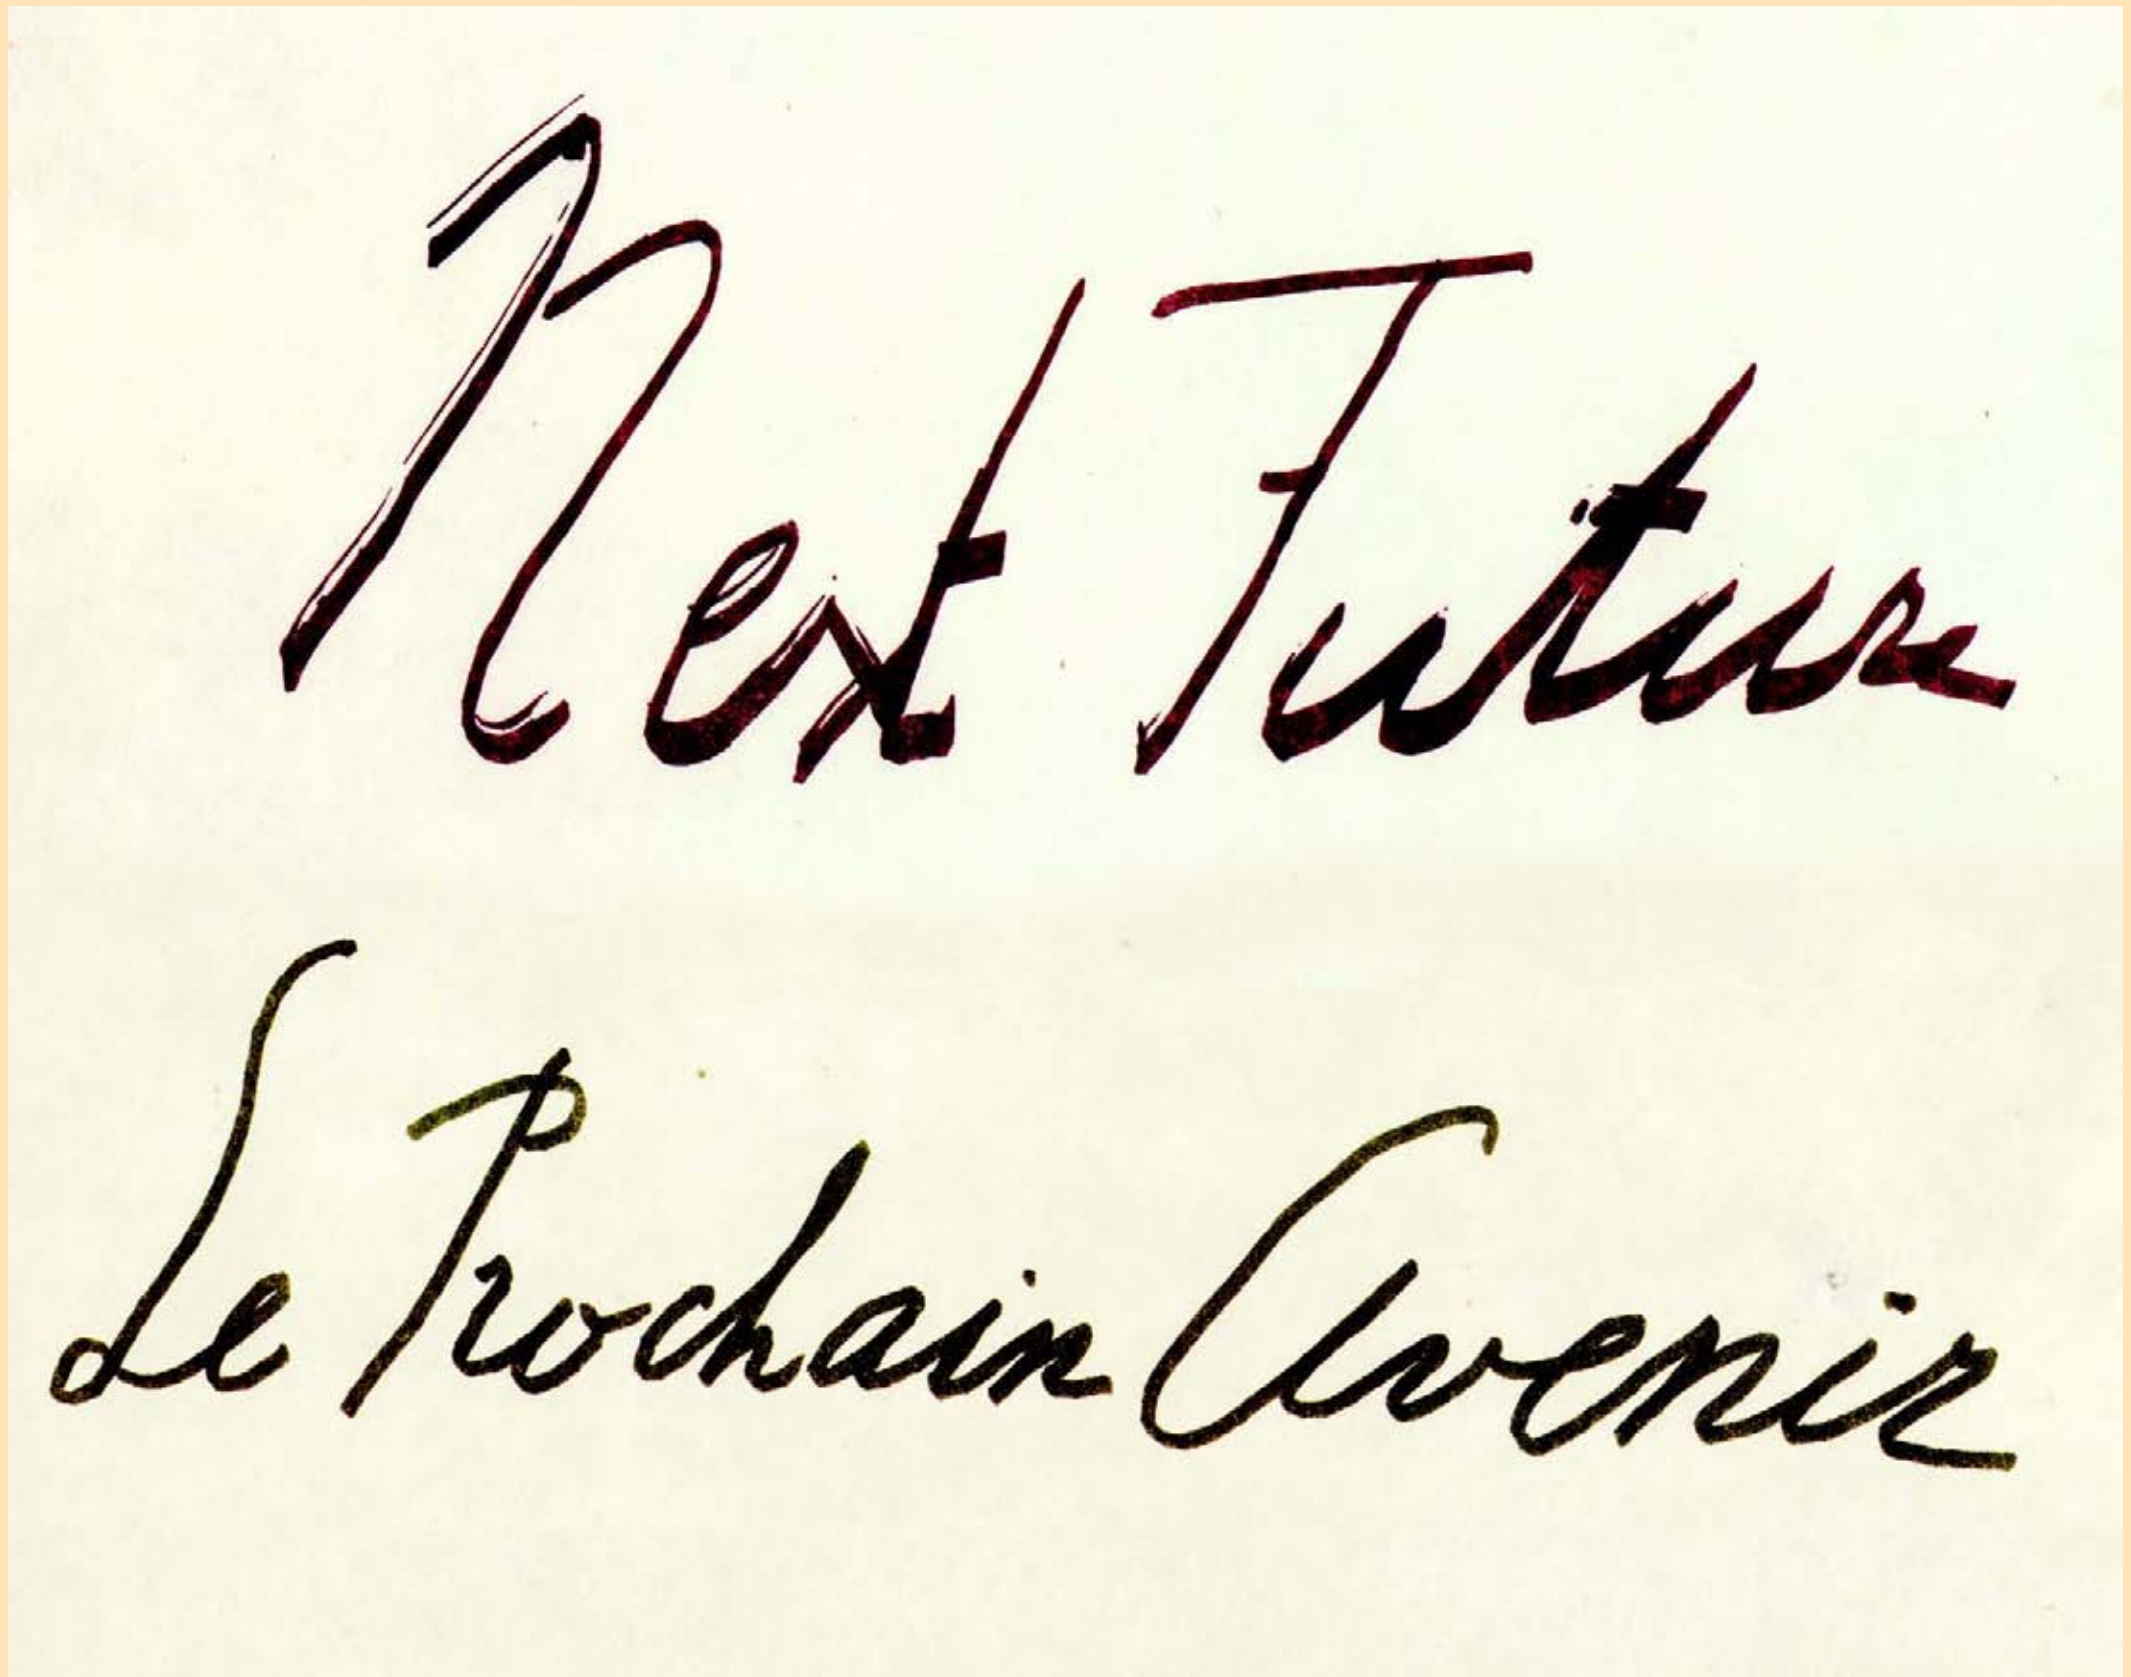 Next Future
Le Prochain Avenir